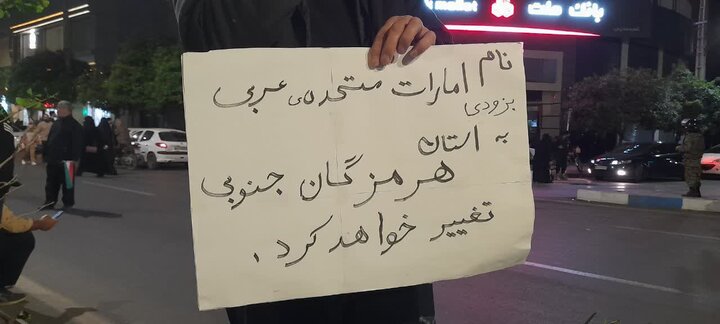 mellat
بانک ملت
نام
امارات متحده‌ی عربی
بزودی
به استان
هرمزگان جنوبی
تغییر خواهد کرد.